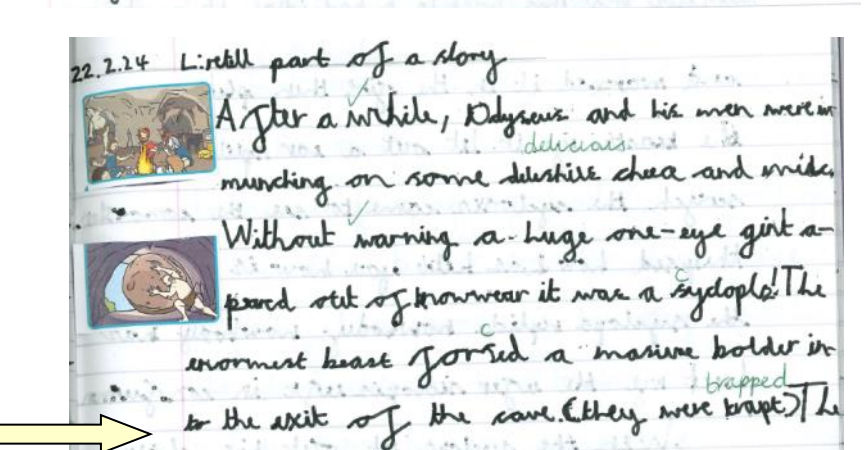 22.2.24 L:retell part of a story
After a while, Odyseus and his men were in
delicious
munching on some deleshise chees and milk.
Without warning a huge one-eye gint a-
peared out of knowwear it was a syclople! The
c
enormest beast forsed a masiuve bolder in
trapped
to the exit of the cave. (they were trapt.) The